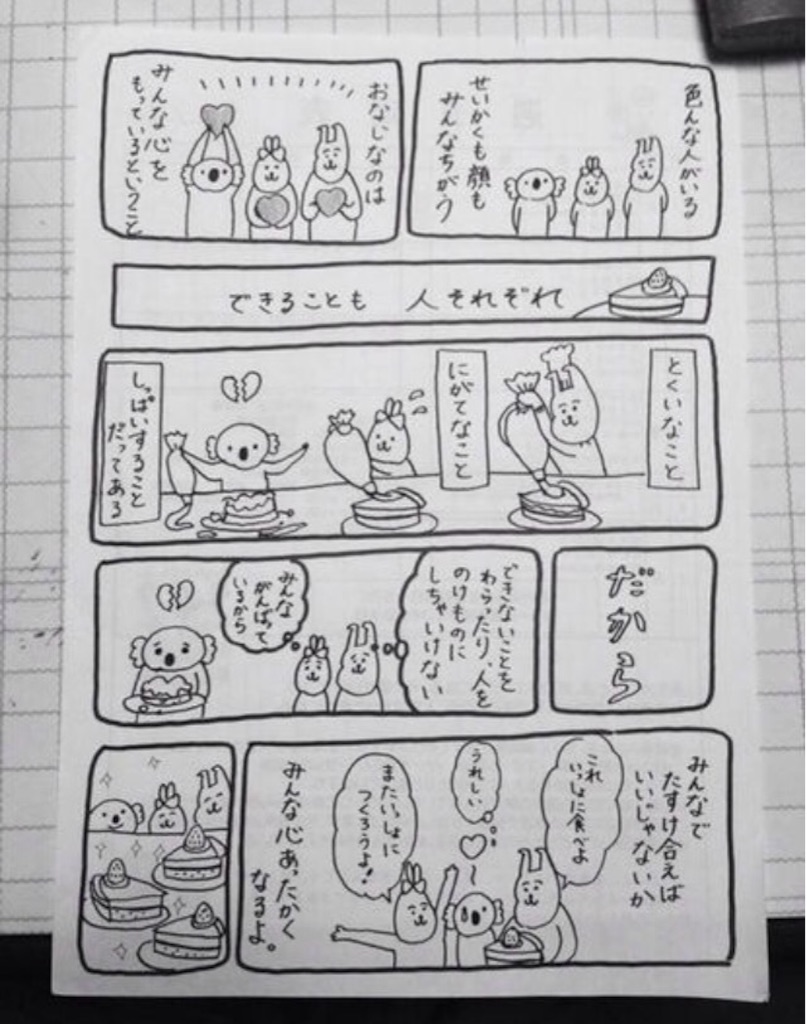 色んな人がいる
せいかくも顔も
みんなちがう
おなじなのは
みんな心を
もっているということ
できることも 人それぞれ
とくいなこと
にがてなこと
しっぱいすること
だってある
だから
できないことを
わらったり、人を
のけものに
しちゃいけない
みんな
がんばって
いるから
みんなで
たすけ合えば
いいじゃないか
これ
いっしょに食べよ
うれしい
またいっしょに
つくろうよ!
みんな心あったかく
なるよ。